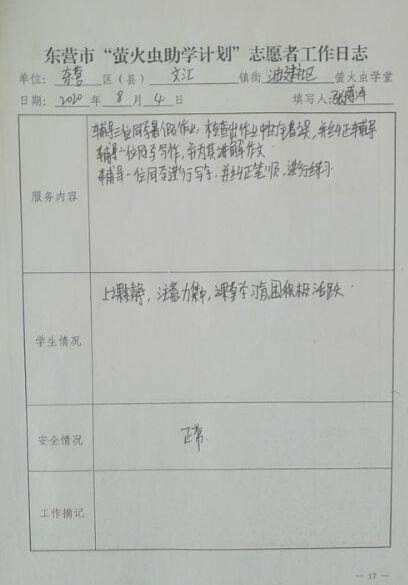 东营市“萤火虫助学计划”志愿者工作日志
单位: 东营 区(县) 文汇 镇街 油建社区 萤火虫学堂
日期: 2020 年 8 月 4 日 填写人:
服务内容
辅导三位同学暑假作业,检查出作业中存在着错误,并纠正辅导
辅导一位同学写作,并为其讲解作文
辅导一位同学进行写字,并纠正笔顺,进行练习.
学生情况
上课安静,注意力集中,课堂学习氛围积极活跃.
安全情况
正常
工作摘记
— 17 —